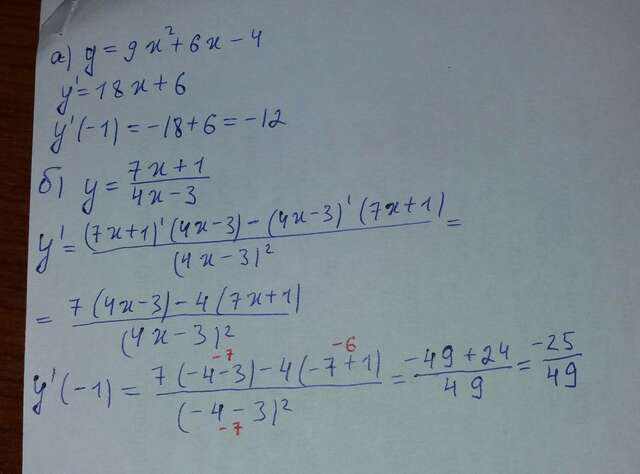 а) y = 9x² + 6x - 4
y' = 18x + 6
y'(-1) = -18 + 6 = -12
б) y = (7x + 1)/(4x - 3)
y' = ((7x + 1)' (4x - 3) - (4x - 3)' (7x + 1))/((4x - 3)²) =
= (7(4x - 3) - 4(7x + 1))/((4x - 3)²)
-7 -6
y'(-1) = (7(-4 - 3) - 4(-7 + 1))/((-4 - 3)²) = (-49 + 24)/49 = (-25)/49
-7